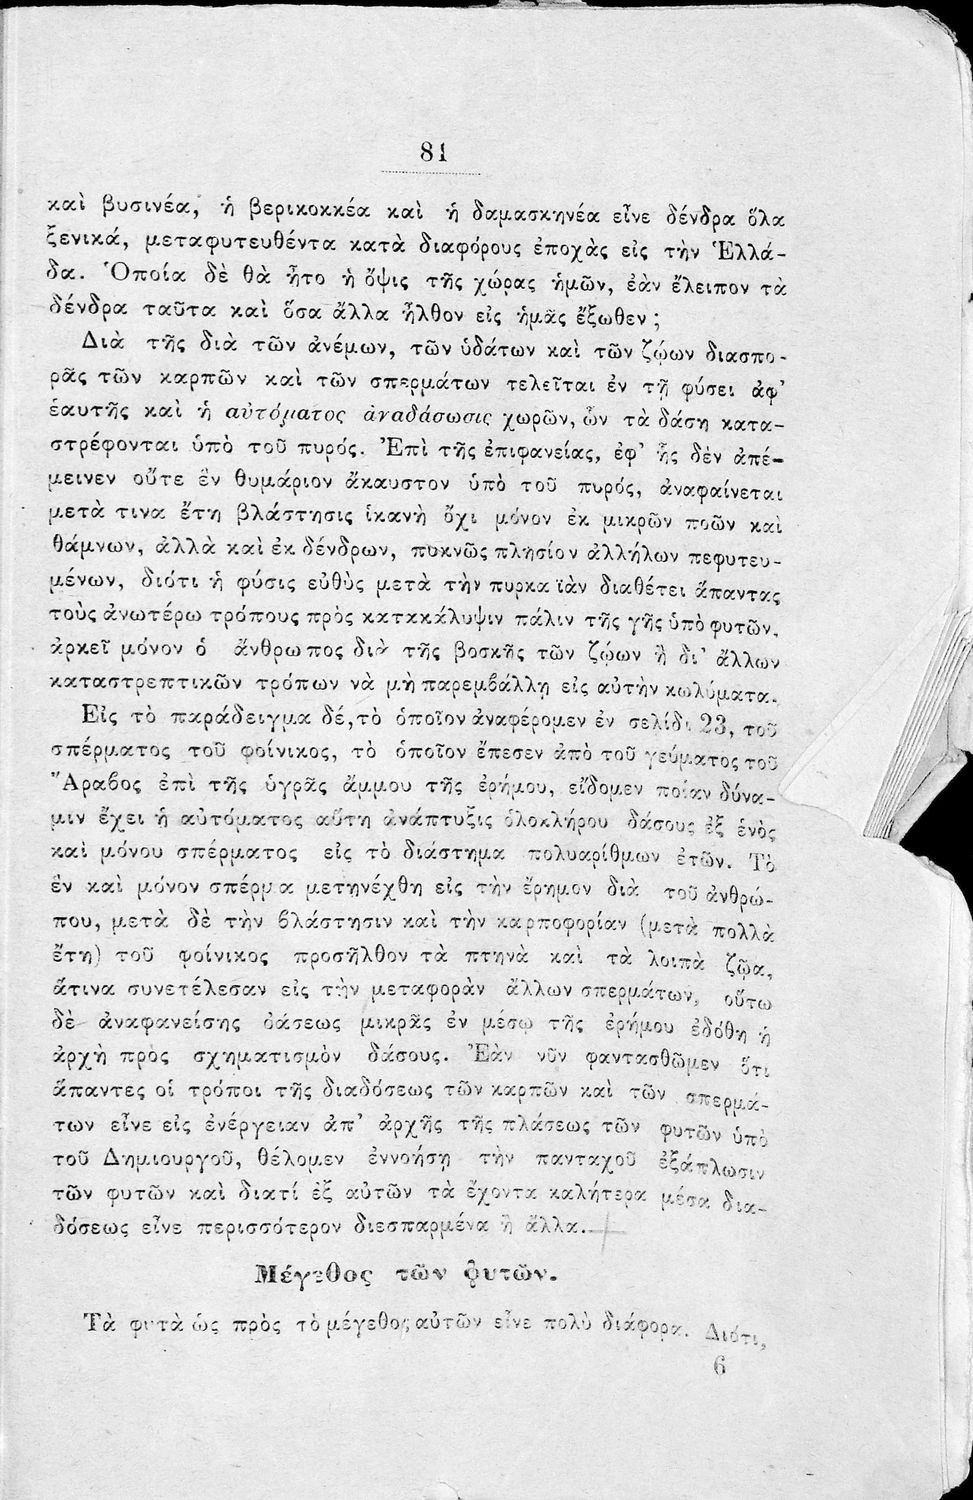 81
καὶ βυσινέα, ἡ βερικοκκέα καὶ ἡ δαμασκηνέα εἶνε δένδρα ὅλα
ξενικά, μεταφυτευθέντα κατὰ διαφόρους ἐποχὰς εἰς τὴν Ἑλλά-
δα. Ὁποία δὲ θὰ ἦτο ἡ ὄψις τῆς χώρας ἡμῶν, ἐὰν ἔλειπον τὰ
δένδρα ταῦτα καὶ ὅσα ἄλλα ἦλθον εἰς ἡμᾶς ἔξωθεν ;
Διὰ τῆς διὰ τῶν ἀνέμων, τῶν ὑδάτων καὶ τῶν ζῴων διασπο-
ρᾶς τῶν καρπῶν καὶ τῶν σπερμάτων τελεῖται ἐν τῇ φύσει ἀφ’
ἑαυτῆς καὶ ἡ αὐτόματος ἀναδάσωσις χωρῶν, ὧν τὰ δάση κατα-
στρέφονται ὑπὸ τοῦ πυρός. Ἐπὶ τῆς ἐπιφανείας, ἐφ’ ἧς δὲν ἀπέ-
μεινεν οὔτε ἓν θυμάριον ἄκαυστον ὑπὸ τοῦ πυρός, ἀναφαίνεται
μετὰ τινα ἔτη βλάστησις ἱκανὴ ὄχι μόνον ἐκ μικρῶν ποῶν καὶ
θάμνων, ἀλλὰ καὶ ἐκ δένδρων, πυκνῶς πλησίον ἀλλήλων πεφυτευ-
μένων, διότι ἡ φύσις εὐθὺς μετὰ τὴν πυρκαϊὰν διαθέτει ἅπαντας
τοὺς ἀνωτέρω τρόπους πρὸς κατακάλυψιν πάλιν τῆς γῆς ὑπὸ φυτῶν,
ἀρκεῖ μόνον ὁ ἄνθρωπος διὰ τῆς βοσκῆς τῶν ζῴων ἢ δι’ ἄλλων
καταστρεπτικῶν τρόπων νὰ μὴ παρεμβάλλῃ εἰς αὐτὴν κωλύματα.
Εἰς τὸ παράδειγμα δέ, τὸ ὁποῖον ἀναφέρομεν ἐν σελίδι 23, τοῦ
σπέρματος τοῦ φοίνικος, τὸ ὁποῖον ἔπεσεν ἀπὸ τοῦ γεύματος τοῦ
Ἄραβος ἐπὶ τῆς ὑγρᾶς ἄμμου τῆς ἐρήμου, εἴδομεν ποίαν δύνα-
μιν ἔχει ἡ αὐτόματος αὕτη ἀνάπτυξις ὁλοκλήρου δάσους ἐξ ἑνὸς
καὶ μόνου σπέρματος εἰς τὸ διάστημα πολυαρίθμων ἐτῶν. Τὸ
ἓν καὶ μόνον σπέρμα μετηνέχθη εἰς τὴν ἔρημον διὰ τοῦ ἀνθρώ-
που, μετὰ δὲ τὴν βλάστησιν καὶ τὴν καρποφορίαν (μετὰ πολλὰ
ἔτη) τοῦ φοίνικος προσῆλθον τὰ πτηνὰ καὶ τὰ λοιπὰ ζῷα,
ἅτινα συνετέλεσαν εἰς τὴν μεταφορὰν ἄλλων σπερμάτων, οὕτω
δὲ ἀναφανείσης ὀάσεως μικρᾶς ἐν μέσῳ τῆς ἐρήμου ἐδόθη ἡ
ἀρχὴ πρὸς σχηματισμὸν δάσους. Ἐὰν νῦν φαντασθῶμεν ὅτι
ἅπαντες οἱ τρόποι τῆς διαδόσεως τῶν καρπῶν καὶ τῶν σπερμά-
των εἶνε εἰς ἐνέργειαν ἀπ’ ἀρχῆς τῆς πλάσεως τῶν φυτῶν ὑπὸ
τοῦ Δημιουργοῦ, θέλομεν ἐννοήσῃ τὴν πανταχοῦ ἐξάπλωσιν
τῶν φυτῶν καὶ διατί ἐξ αὐτῶν τὰ ἔχοντα καλήτερα μέσα δια-
δόσεως εἶνε περισσότερον διεσπαρμένα ἢ ἄλλα.
Μέγεθος τῶν φυτῶν.
Τὰ φυτὰ ὡς πρὸς τὸ μέγεθος αὐτῶν εἶνε πολὺ διάφορα. Διότι,
6